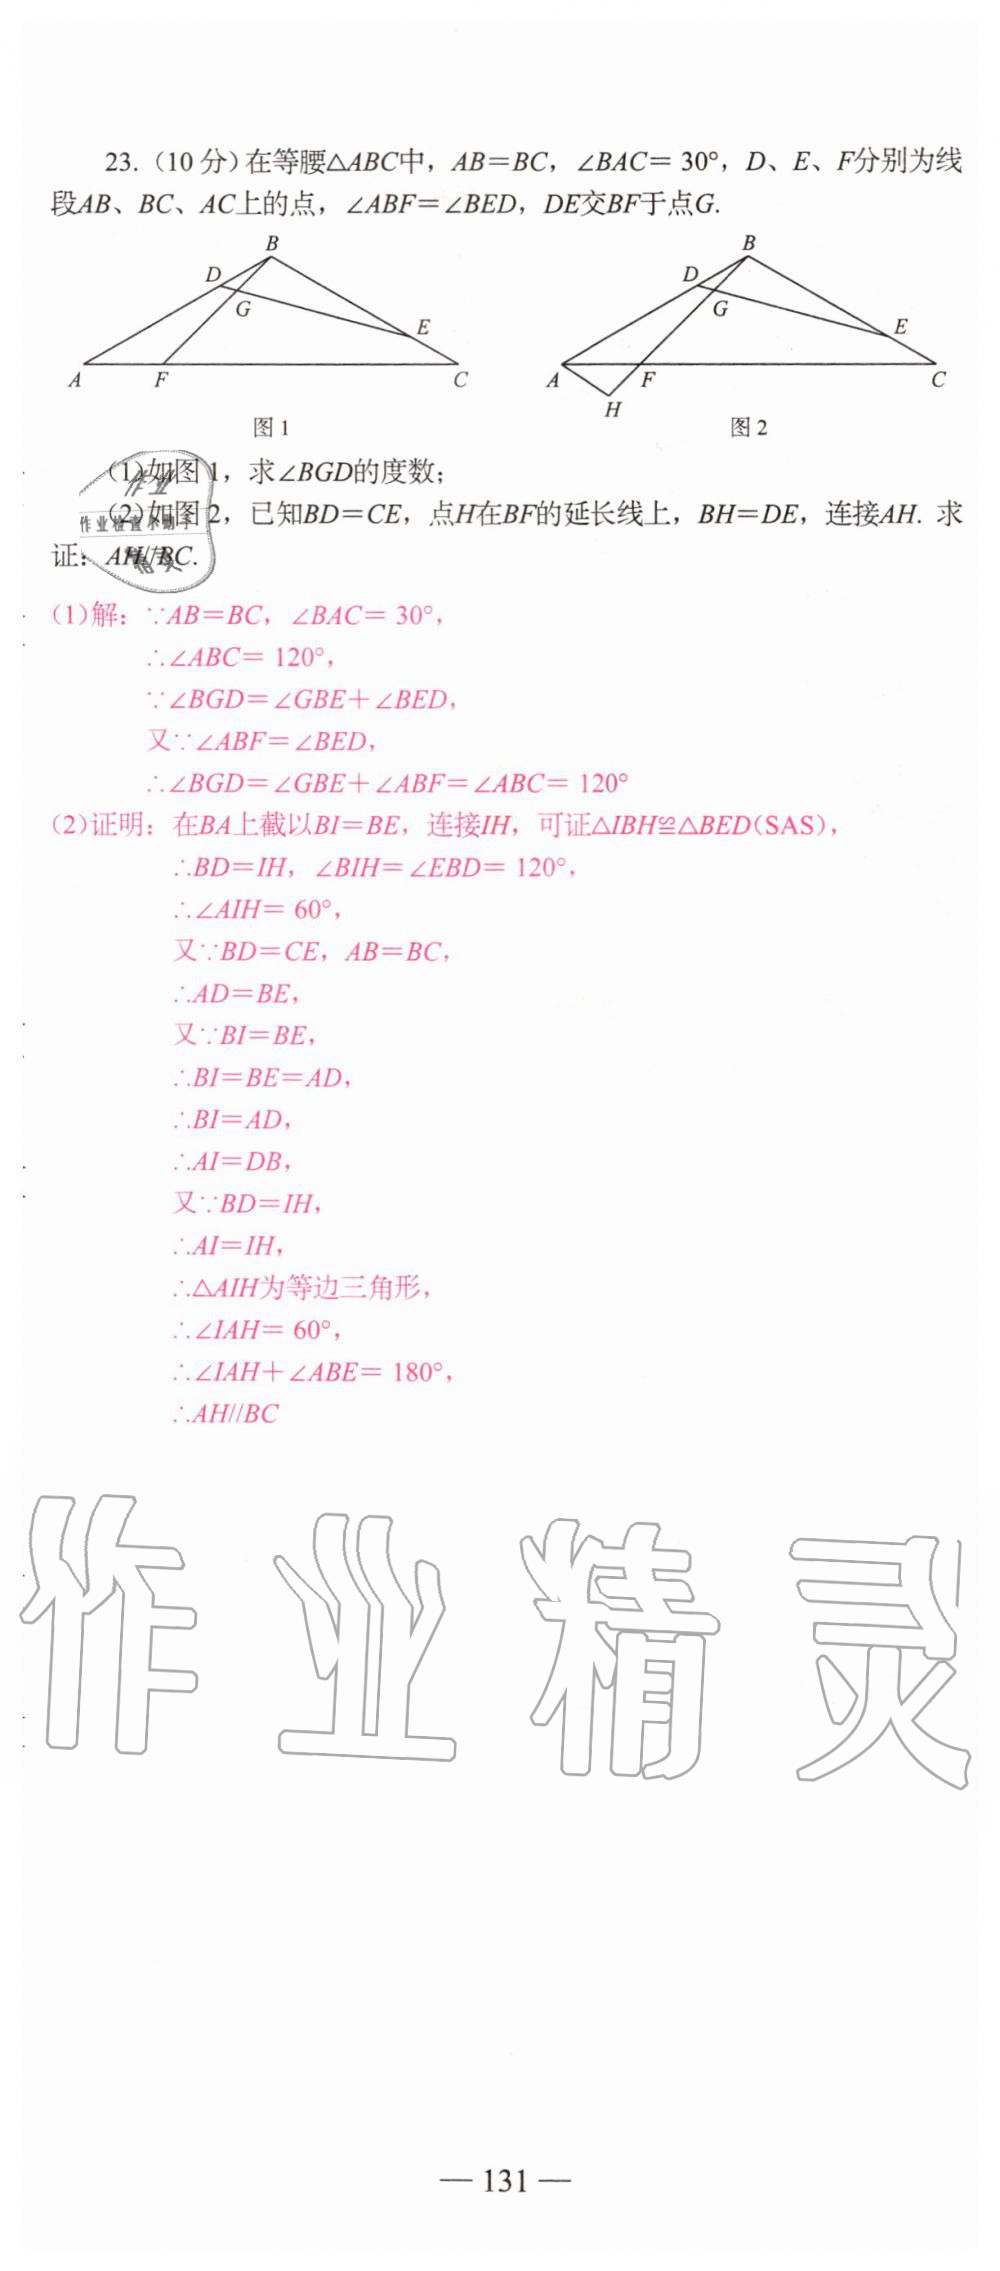 23.（10 分）在等腰△ABC中，AB＝BC，∠BAC＝30°，D、E、F分别为线
段AB、BC、AC上的点，∠ABF＝∠BED，DE交BF于点G.
B
D
G
E
A
F
C
图 1
B
D
G
E
A
F
C
H
图 2
(1)如图 1，求∠BGD的度数；
作业
作业检查小助手
(2)如图 2，已知BD＝CE，点H在BF的延长线上，BH＝DE，连接AH. 求
证：AH//BC.
(1)解：∵AB＝BC，∠BAC＝30°，
∴∠ABC＝120°，
∵∠BGD＝∠GBE＋∠BED，
又∵∠ABF＝∠BED，
∴∠BGD＝∠GBE＋∠ABF＝∠ABC＝120°
(2)证明：在BA上截以BI＝BE，连接IH，可证△IBH≌△BED(SAS)，
∴BD＝IH，∠BIH＝∠EBD＝120°，
∴∠AIH＝60°，
又∵BD＝CE，AB＝BC，
∴AD＝BE，
又∵BI＝BE，
∴BI＝BE＝AD，
∴BI＝AD，
∴AI＝DB，
又∵BD＝IH，
∴AI＝IH，
∴△AIH为等边三角形，
∴∠IAH＝60°，
∴∠IAH＋∠ABE＝180°，
∴AH//BC
作业精灵
— 131 —